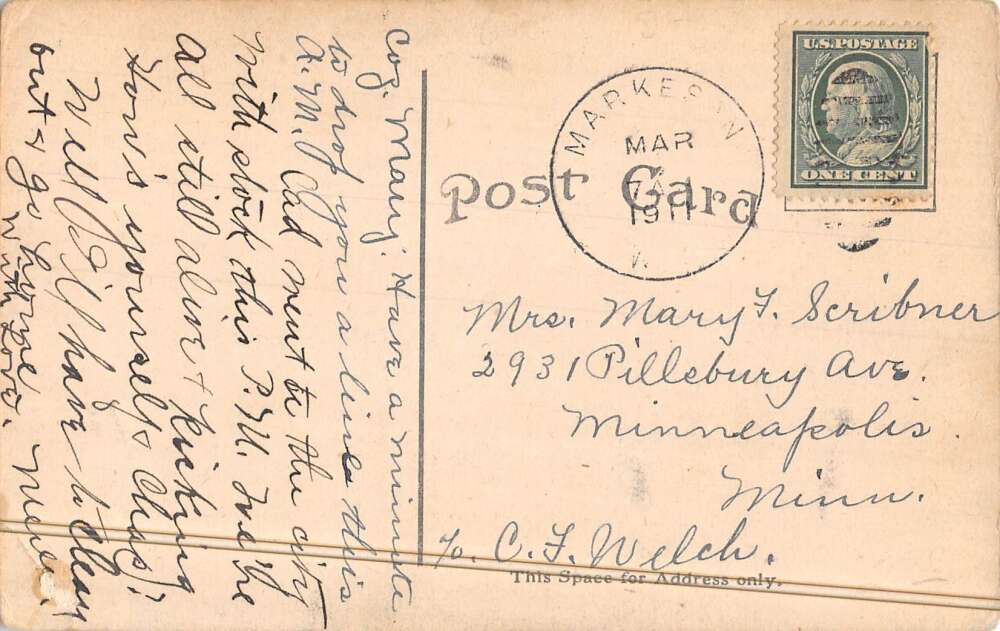 Coz. Mary. Have a minute
to drop you a line this
A.M. Ed went to the city
with stock this P.M. We're
all still alive & kicking
How's yourself & Chas?
Well I'll have to clean
out & go home
With Love.
MARKESAN
MAR
7 A
1911
W
U.S. POSTAGE
ONE CENT
Post Card
Mrs. Mary F. Scribner
2931 Pillsbury Ave.
Minneapolis.
Minn.
℅ C. F. Welch.
This Space for Address only.